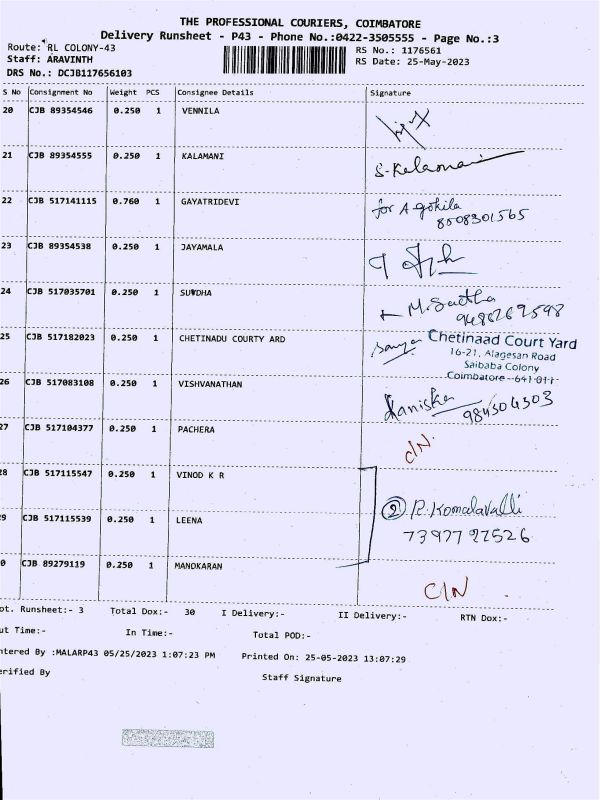 THE PROFESSIONAL COURIERS, COIMBATORE
Delivery Runsheet - P43 - Phone No.:0422-3505555 - Page No.:3
Route: RL COLONY-43
RS No.: 1176561
Staff: ARAVINTH
RS Date: 25-May-2023
DRS No.: DCJB117656103
S No Consignment No Weight PCS Consignee Details Signature
20 CJB 89354546 0.250 1 VENNILA
21 CJB 89354555 0.250 1 KALAMANI S-Kalamani
22 CJB 517141115 0.760 1 GAYATRIDEVI for A gokila
8508301565
23 CJB 89354538 0.250 1 JAYAMALA
24 CJB 517035701 0.250 1 SUWDHA
25 CJB 517182023 0.250 1 CHETINADU COURTY ARD Chetinaad Court Yard
16-21, Alagesan Road
Saibaba Colony
Coimbatore - 641 011
26 CJB 517083108 0.250 1 VISHVANATHAN Kaniska
984304303
27 CJB 517104377 0.250 1 PACHERA C/N.
28 CJB 517115547 0.250 1 VINOD K R
② R. Komalavalli
9 CJB 517115539 0.250 1 LEENA 73977 27526
0 CJB 89279119 0.250 1 MANDKARAN C/N
ot. Runsheet:- 3 Total Dox:- 30 I Delivery:- II Delivery:- RTN Dox:-
ut Time:- In Time:- Total POD:-
ntered By :MALARP43 05/25/2023 1:07:23 PM Printed On: 25-05-2023 13:07:29
erified By Staff Signature